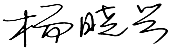 杨晓兰